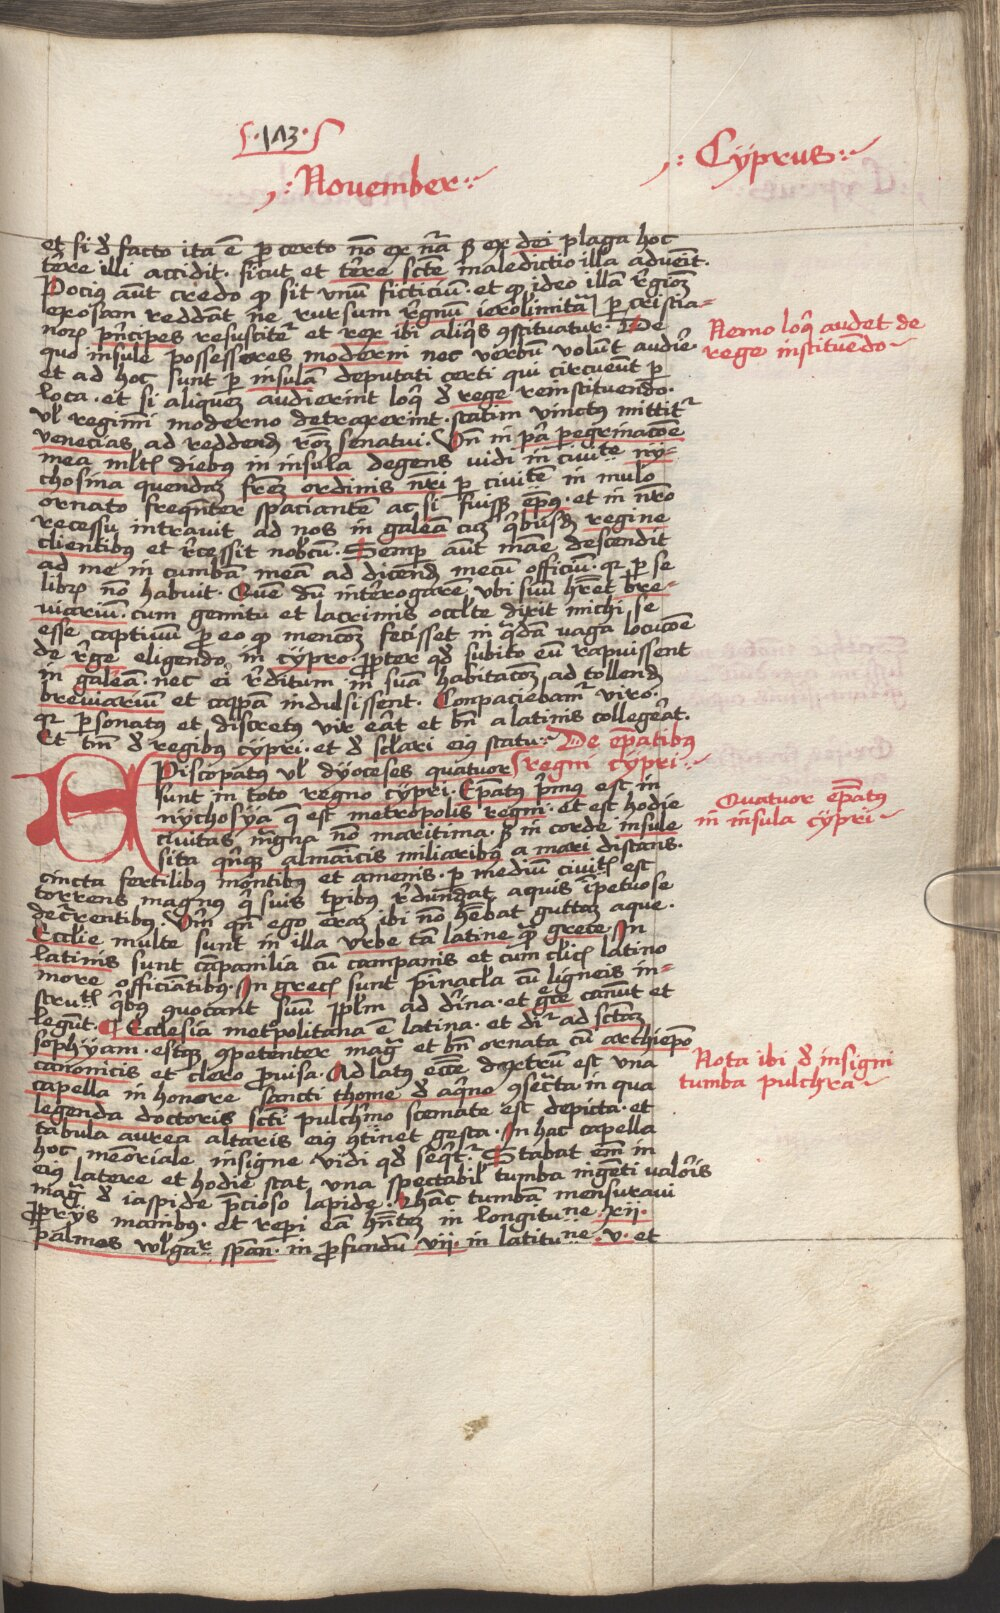 ·173·
November
Cyprus
et si de facto ita ē ꝑ certo nō ex nr̄a sꝫ ex dei plaga hoc
t̄rere illi accidit. sicut et t̄re sctē maledictio illa advēit.
Pocius aūt credo ꝙ sit vnū ficticiūm. et ꝙ ideo illā r̄gioꝫ
exosam reddāt ne rursum r̄gnū ierosolimitā ꝑ cristia=
noꝝ pn̄cipes resuscitet᷑ et rex ibi aliq̄s ꝯstituatur. De
quo insule possessores moderni nec verbū volūt audir̄e.
et ad hoc sunt ꝑ insulā deputati certi qui circueūt ꝑ
loca. et si aliquem audierint loq̄ de rege reinstituendo.
vl̄ regimi moderno detraxerint. statim vinctus mittit᷑
venecias ad reddendā roꝫ senatui. Vn̄ in pa̅ ꝑegrinacōe
mea ml̄tis diebus in insula degens vidi in civitē ny=
chosina quendaꝫ fr̄em ordinis nr̄i ꝑ civitē in mulo
ornato freqn̄ter spaciantē ac si fuiss; ep̄us. et in nr̄o
recessu intravit ad nos in galeā cuꝫ q̄busdꝫ regine
clientibus et r̄cessit nobcū. Semꝑ aūt mane descendit
ad me in cumbā meā ad dicendꝫ mecū officiū. qr ꝑ se
libꝝ nō habuit. Quē dū int̄rogarē vbi suū hr̄et bre=
viariūm. cum gemitu et lacrimis occl̄te dixit michi se
esse captivūm ꝓ eo ꝙ mencōꝫ fecisset in q̄dā vaga locucōe
de r̄ge eligendo in cypro. ꝓpter qd̄ subito eū rapuissent
in galeā. nec ei r̄ditum in suā habitacōꝫ ad tollendꝫ
breviariūm et cappā indulsissent. Conpaciebam᷑ viro.
qr ꝑsonatus et discretus vir er̄at et bn̄ a latinis collegēat.
Et tm̄ de regibus cypri. et de sclāri eius statu. De ep̄atibus
EPiscopatus vl̄ dyoceses quatuor regni cypri
sunt in toto regno cypri. Ep̄atus pr̄imus est in
nychosya q̄ est metropolis regni. et est hodie
civitas magna nō maritima. sꝫ in corde insule
sita qn̄que almaīcis miliaribus a mari distans.
cincta fertilibus montibus et amenis. ꝑ mediū civitꝭ est
torrens magnus q̄ suis tꝑibus r̄dūndat aquis īpetuose
decurrentibus. Vm̄ qn̄ ego eraꝫ ibi nō hēbat guttaꝫ aque.
Eccl̄ie multe sūnt in illa vrbe tā latine q̄ grece. In
latinis sunt cāpanilia cū campanis et cum clicꝭ latino
more officiātibus. In grecꝭ sunt pinacl̄a cū ligneis in=
strutꝭ q̄bus ꝯvocant suū ꝓplm̄ ad diuina. et gēce canūt et
legūt. Ecclesia metropolitana ē latina. et dr̄ ad sctāꝫ
sophyam. estque ꝯpetenter mag̅ et bn̄ ornata cū archiep̄o
canonicis et clero ꝓvisa. Ad latus ecc̄e dextrūm est vna
capella in honore sancti thome de aqn̄o ꝯsec̄ta in qua
legenda doctoris sctī pulchr̄mo scemate est depicta. et
tabula aurea altaris eius ꝯtinet gesta. In hac capella
hoc memoriale insigne vidi qd̄ seqt᷑. Stabat em̄ in
eius latere et hodie stat vna spectabilꝭ tumba ingēti valoris
mag̅ de iaspide ꝑcioso lapide. Hanc tumbā mensuravi
ꝓprijs manibus. et reperi eā hn̄teꝫ in longitu.ne. xij.
palmos wlgar̄ span. in ꝓfundū vij. in latitu.ne. v. et
Nemo loq̄ audet de
rege instituēdo
Quatuor ep̄atus
in insula cypri
Nota ibi de insigni
tumba pulchra